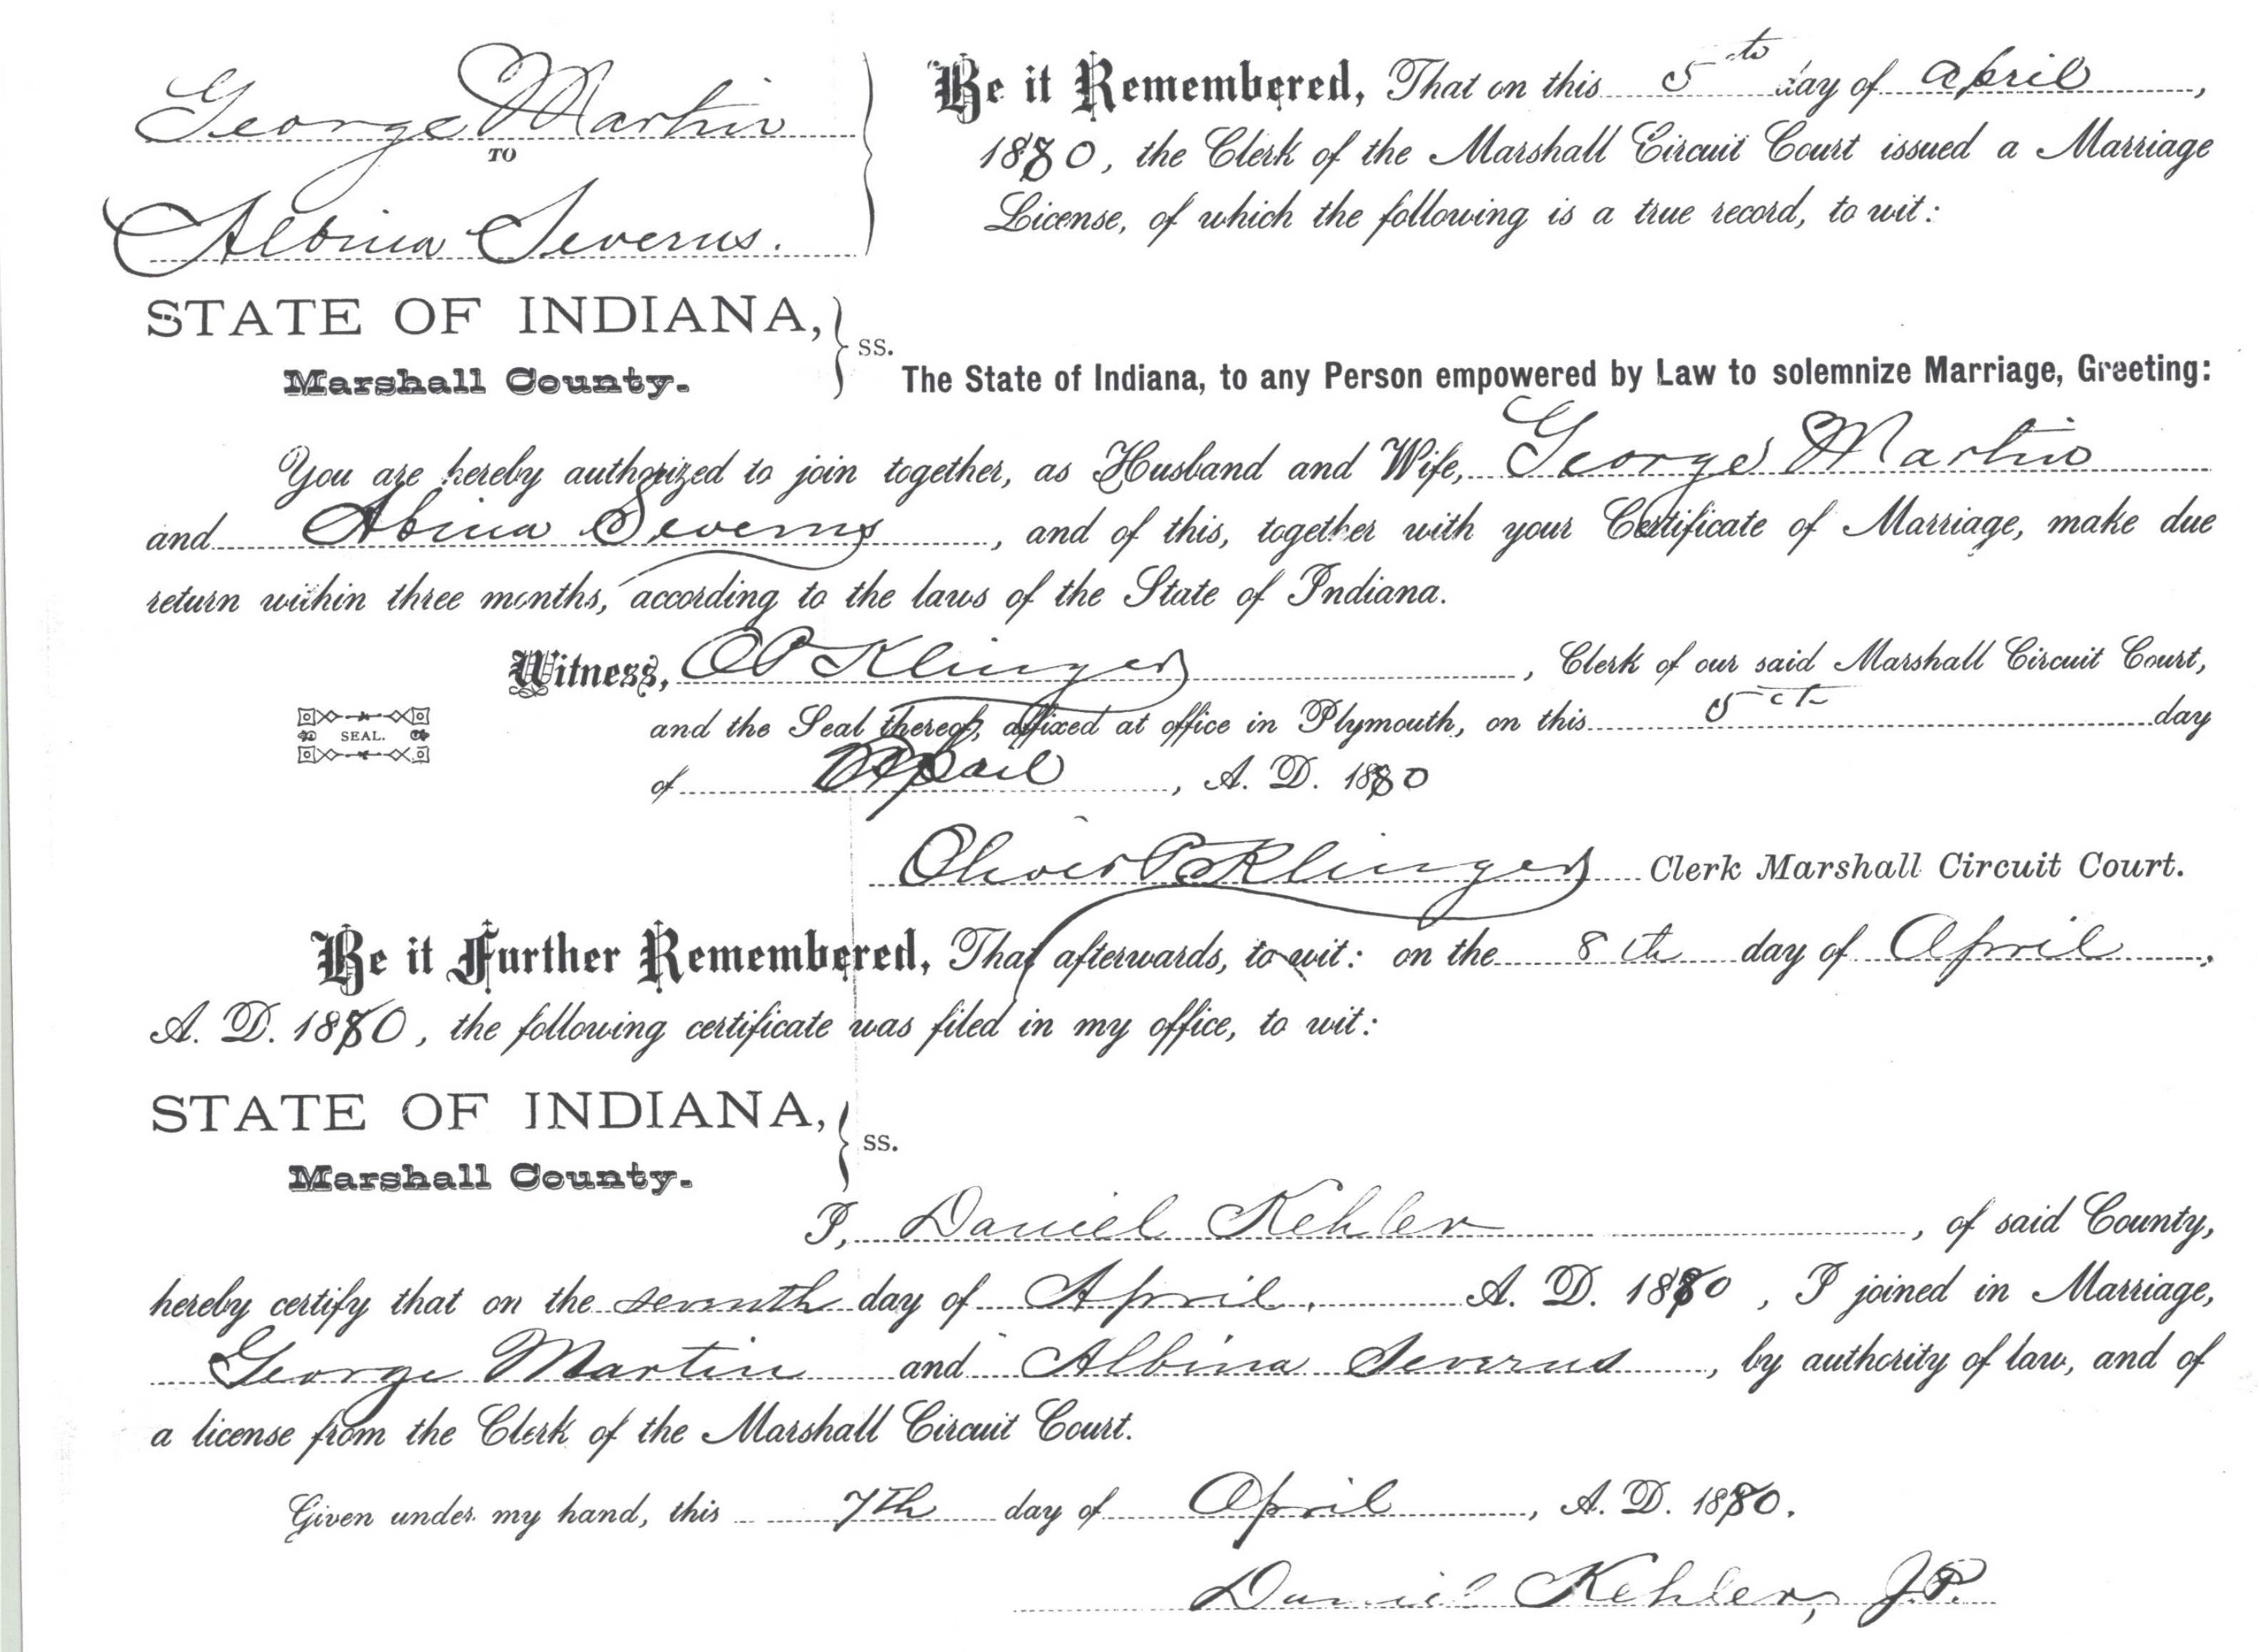 George Martin
TO
Albina Severns.
Be it Remembered, That on this 5th day of April,
1880, the Clerk of the Marshall Circuit Court issued a Marriage
License, of which the following is a true record, to wit:
STATE OF INDIANA,
Marshall County.
SS.
The State of Indiana, to any Person empowered by Law to solemnize Marriage, Greeting:
You are hereby authorized to join together, as Husband and Wife, George Martin
and Abina Severns, and of this, together with your Certificate of Marriage, make due
return within three months, according to the laws of the State of Indiana.
Witness, O P Klinger, Clerk of our said Marshall Circuit Court,
SEAL.
and the Seal thereof, affixed at office in Plymouth, on this 5th day
of April, A. D. 1880
Oliver P Klinger Clerk Marshall Circuit Court.
Be it Further Remembered, That afterwards, to wit: on the 8th day of April,
A. D. 1880, the following certificate was filed in my office, to wit:
STATE OF INDIANA,
Marshall County.
SS.
I, Daniel Kehler, of said County,
hereby certify that on the seventh day of April. A. D. 1880, I joined in Marriage,
George Martin and Albina Severns, by authority of law, and of
a license from the Clerk of the Marshall Circuit Court.
Given under my hand, this 7th day of April, A. D. 1880.
Daniel Kehler, J.P.